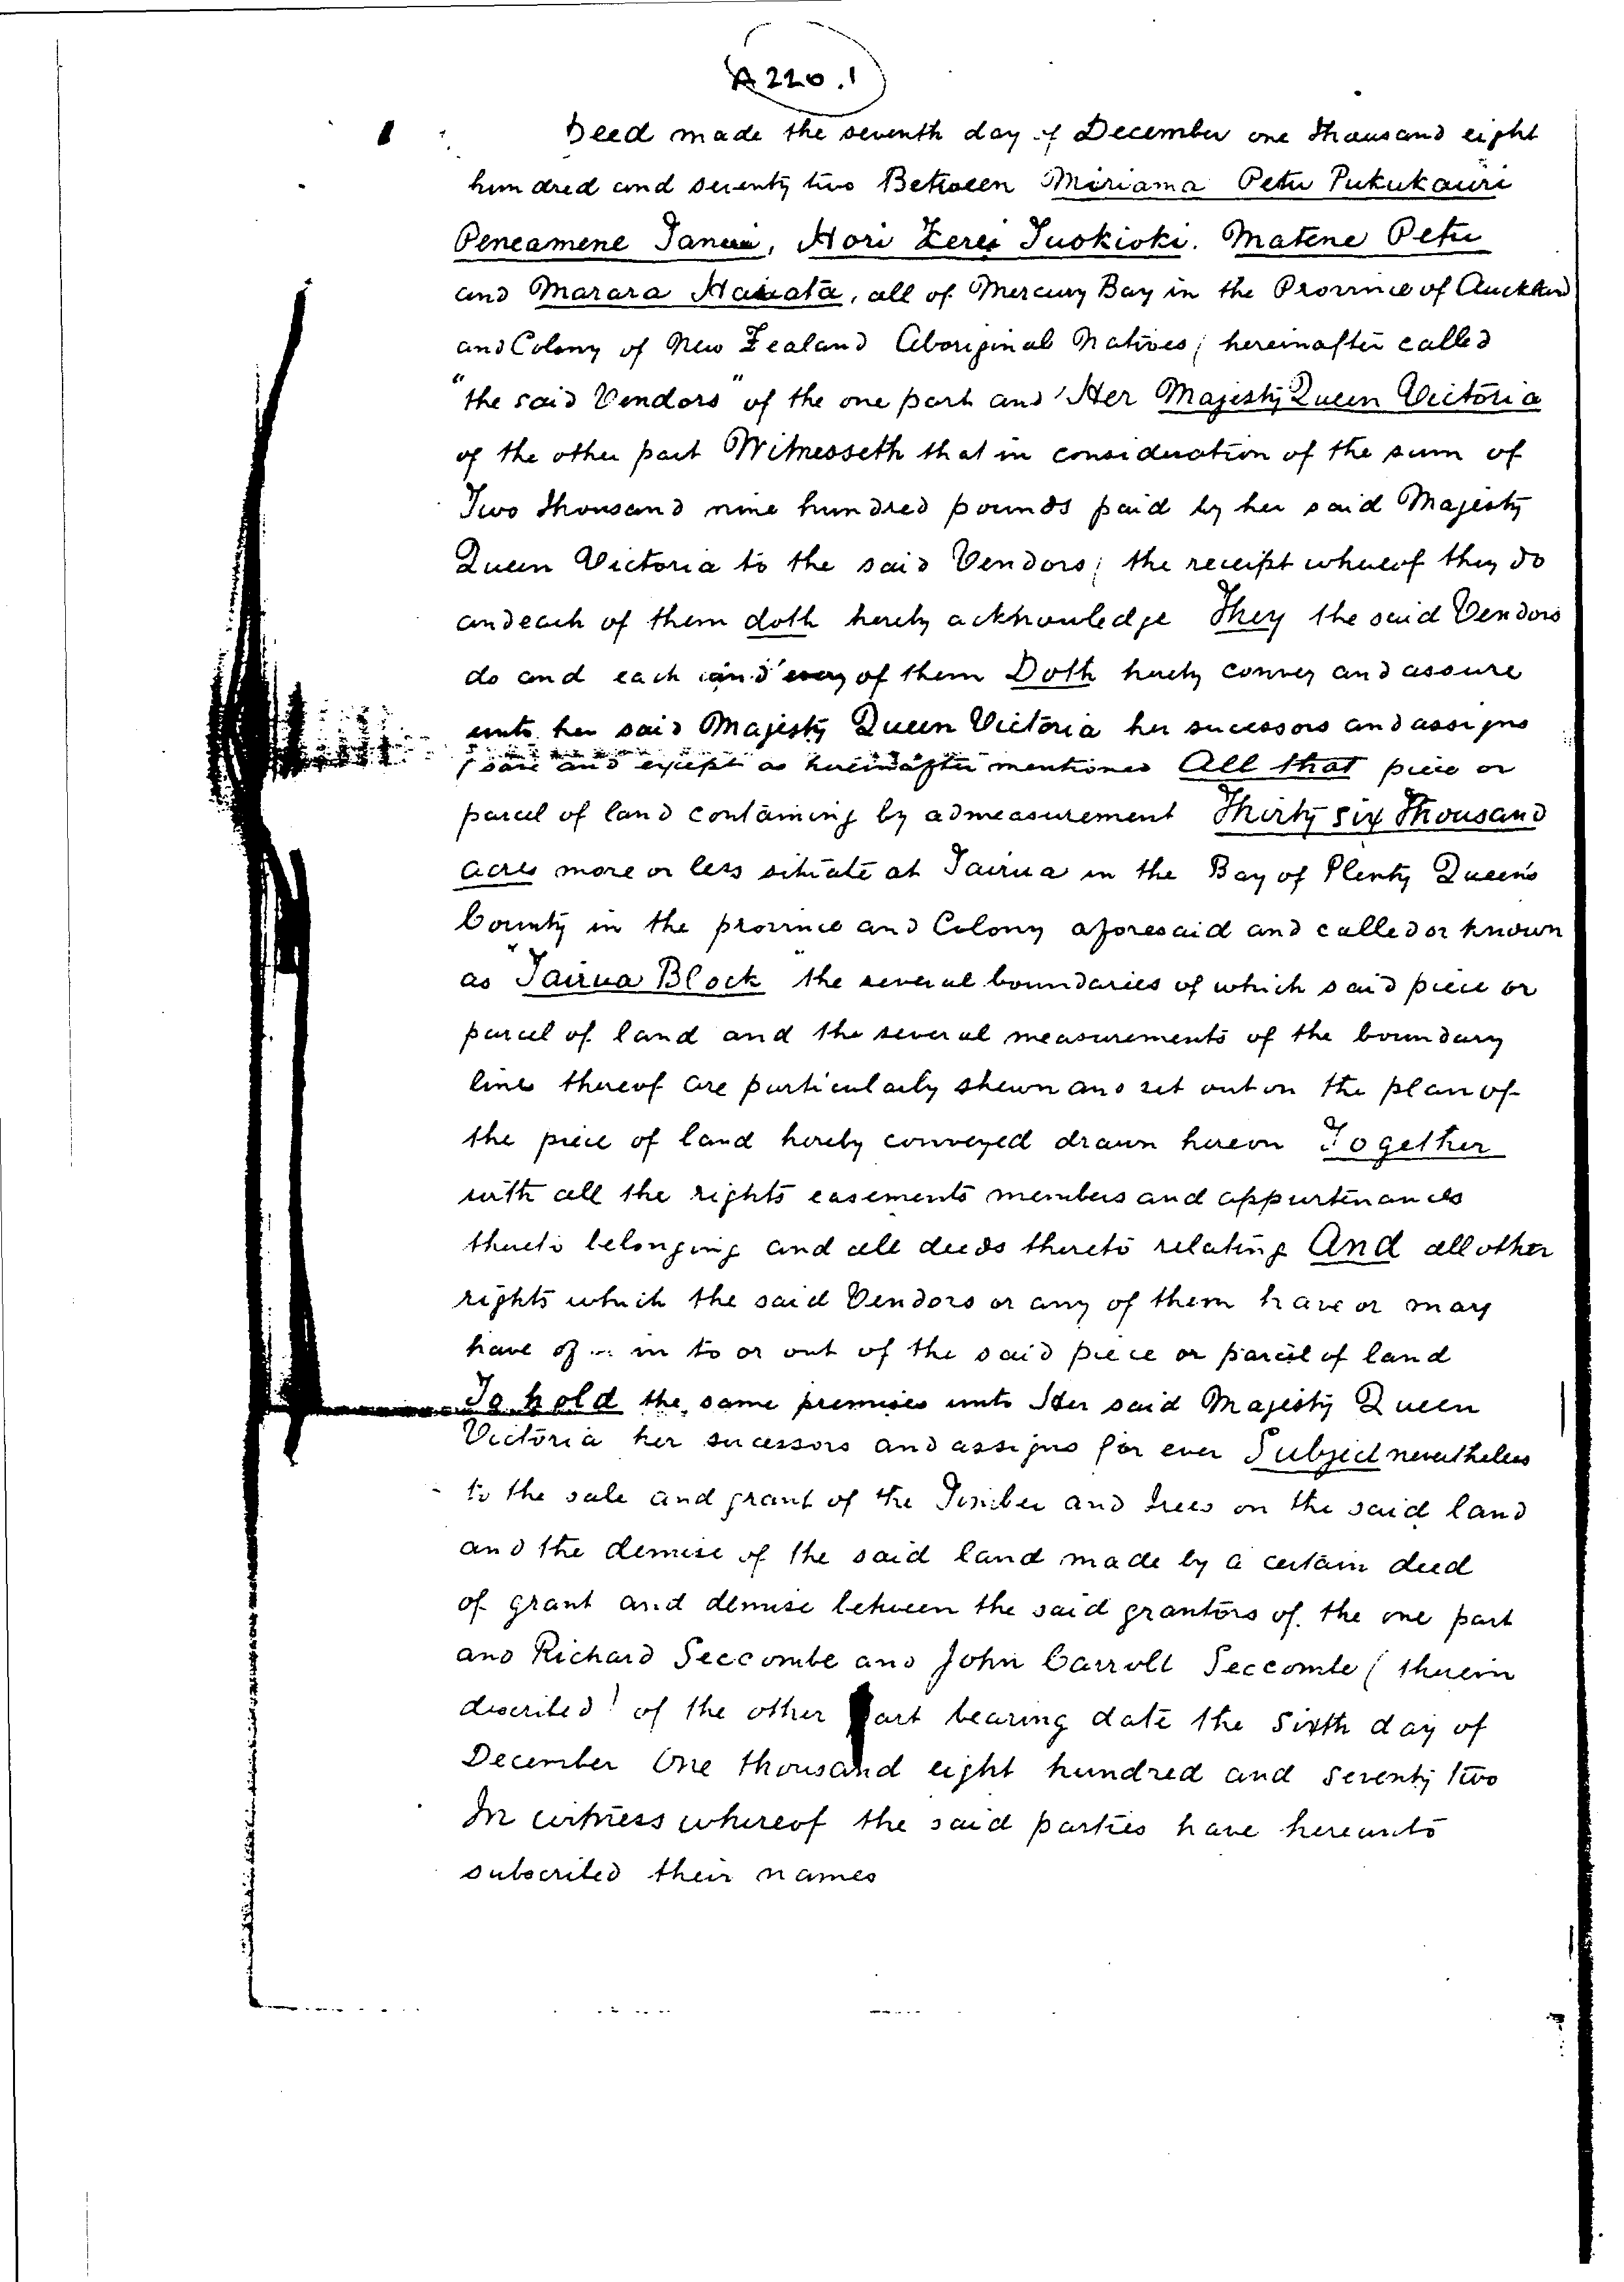 A 220.1
Deed made the seventh day of December one thousand eight
hundred and seventy two Between Miriama Petu Pukukauri
Peneamene Tanui, Hori Kerei Tuokioki. Matene Petu
and Marara Hauata, all of Mercury Bay in the Province of Auckland
and Colony of New Zealand Aboriginal Natives, hereinafter called
"the said Vendors" of the one part and Her Majesty Queen Victoria
of the other part Witnesseth that in consideration of the sum of
Two thousand nine hundred pounds paid by her said Majesty
Queen Victoria to the said Vendors, the receipt whereof they do
and each of them doth hereby acknowledge They the said Vendors
do and each and every of them Doth hereby convey and assure
unto her said Majesty Queen Victoria her sucessors and assigns
(save and except as hereinafter mentioned All that piece or
parcel of land containing by admeasurement Thirty six Thousand
acres more or less situate at Tairua in the Bay of Plenty Queen's
County in the province and Colony aforesaid and called or known
as "Tairua Block" the several boundaries of which said piece or
parcel of land and the several measurements of the boundary
lines thereof are particularly shewn and set out on the plan of
the piece of land hereby conveyed drawn hereon Together
with all the rights easements members and appurtenances
thereto belonging and all deeds thereto relating And all other
rights which the said Vendors or any of them have or may
have of in to or out of the said piece or parcel of land
To hold the same premises unto Her said Majesty Queen
Victoria her sucessors and assigns for ever Subject nevertheless
to the sale and grant of the Timber and trees on the said land
and the demise of the said land made by a certain deed
of grant and demise between the said grantors of the one part
and Richard Seccombe and John Carroll Seccombe (therein
described) of the other part bearing date the sixth day of
December One thousand eight hundred and seventy two
In witness whereof the said parties have hereunto
subscribed their names